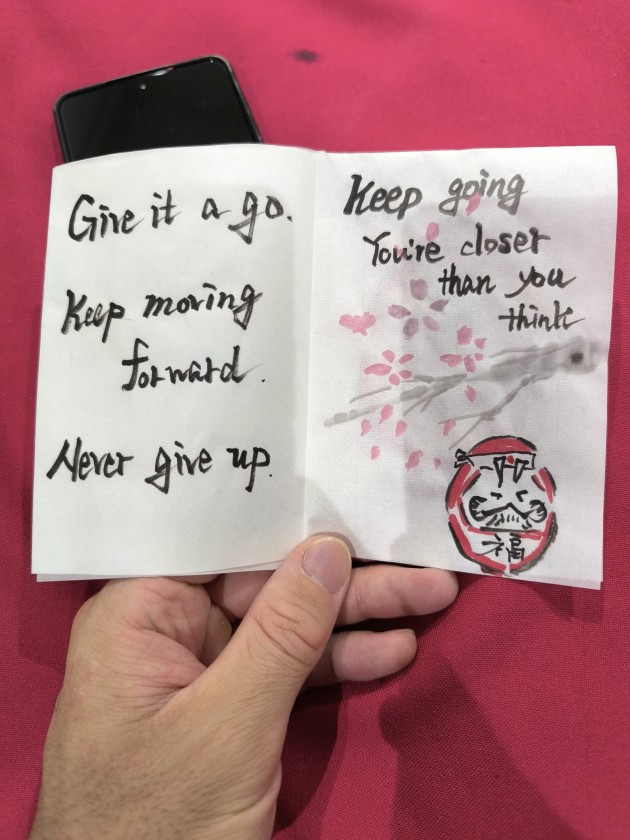 Give it a go.
Keep moving
forward.
Never give up.
Keep going
You're closer
than you
think
福